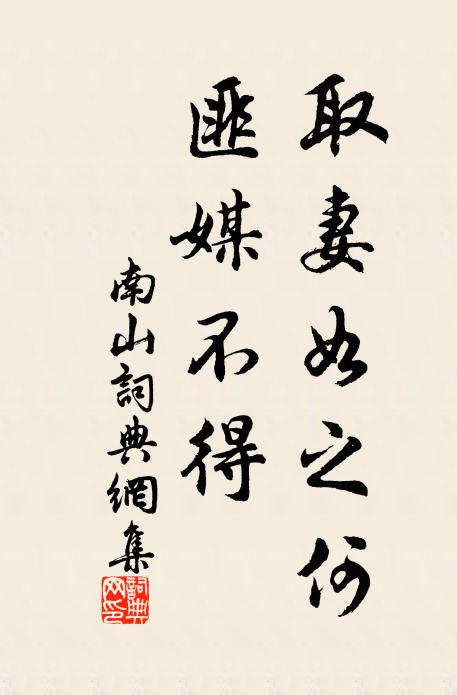 取妻如之何
匪媒不得
南山詞典網集
詞典网印